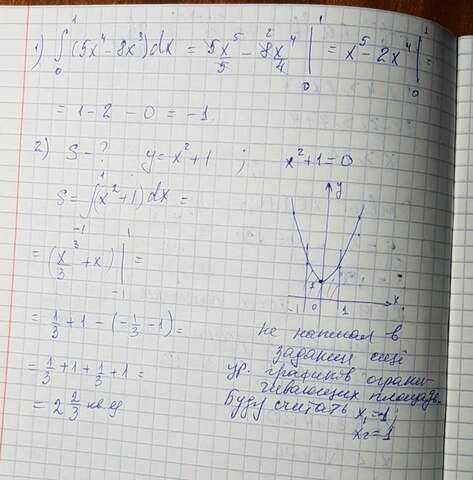 1) ∫₀¹ (5x⁴ - 8x³) dx = 5x⁵/5 - 8x⁴/4 |₀¹ = x⁵ - 2x⁴ |₀¹ =
= 1 - 2 - 0 = -1
2) S - ? y = x² + 1 ; x² + 1 = 0
S = ∫₋₁¹ (x² + 1) dx =
= (x³/3 + x) |₋₁¹ =
= 1/3 + 1 - (-1/3 - 1) =
= 1/3 + 1 + 1/3 + 1 =
= 2 2/3 кв.ед
y
1
-1 0 1 x
не написал в
задании ещё
ур. графиков ограни-
чивающих площадь.
Буду считать x₁ = -1;
x₂ = 1